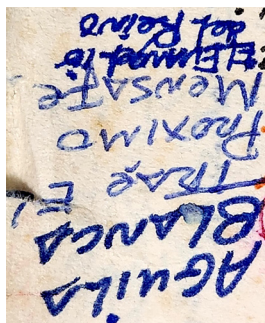 AGUILA
BLANCA
TRAE EL
PROXIMO
MENSAJE
del Reino